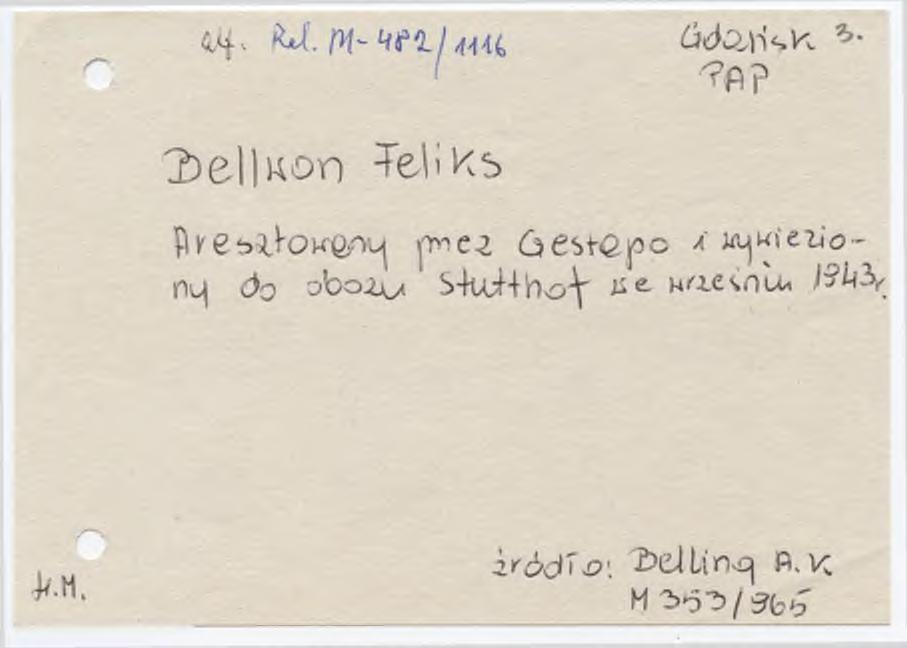 alf. Rel. M-482/1116
Gdańsk 3.
PAP
Bellwon Feliks
Aresztowany przez Gestapo i wywiezio-
ny do obozu Stutthof we wrześniu 1943r.
źródło: Belling A.K.
M 353/965
H.M.